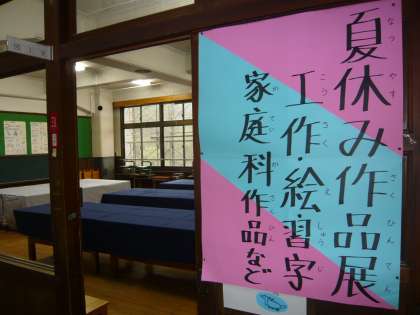 夏休み作品展
工作・絵・習字
家庭科作品など